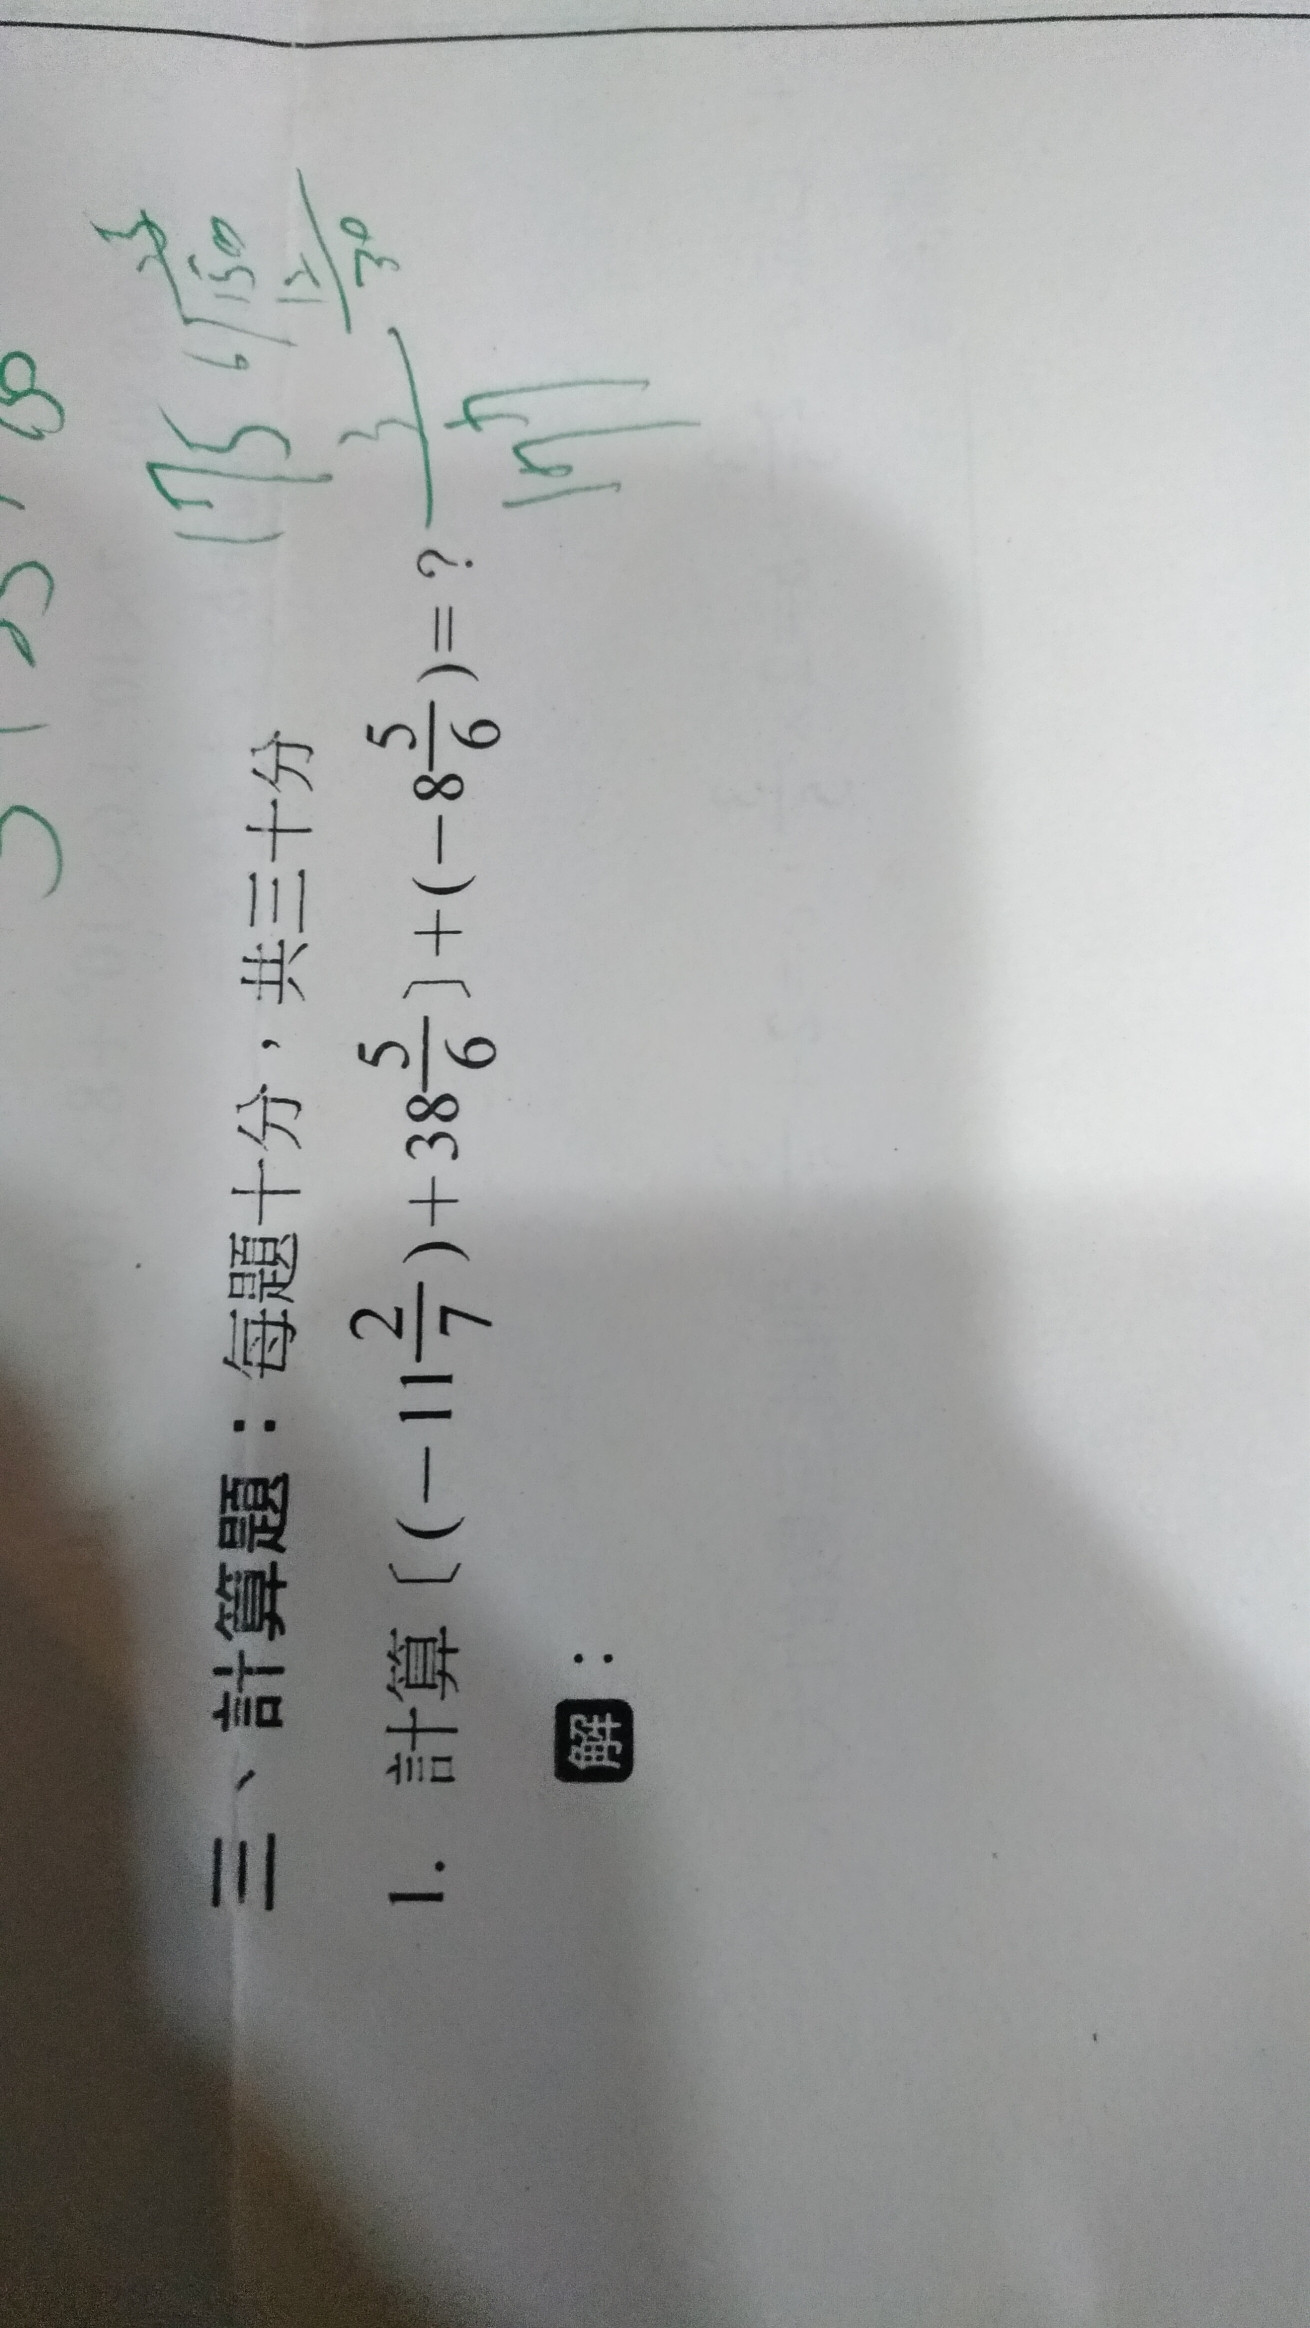 三、計算題：每題十分，共三十分
1. 計算〔(－11 2/7)＋38 5/6〕＋(－8 5/6)＝？
解：
175
3
6 150
12
30